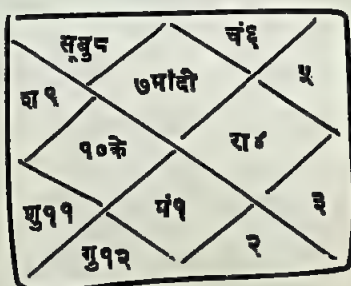 सूबु८
चं६
श९
७मांदी
५
१०के
रा४
शु११
मं१
३
गु१२
२